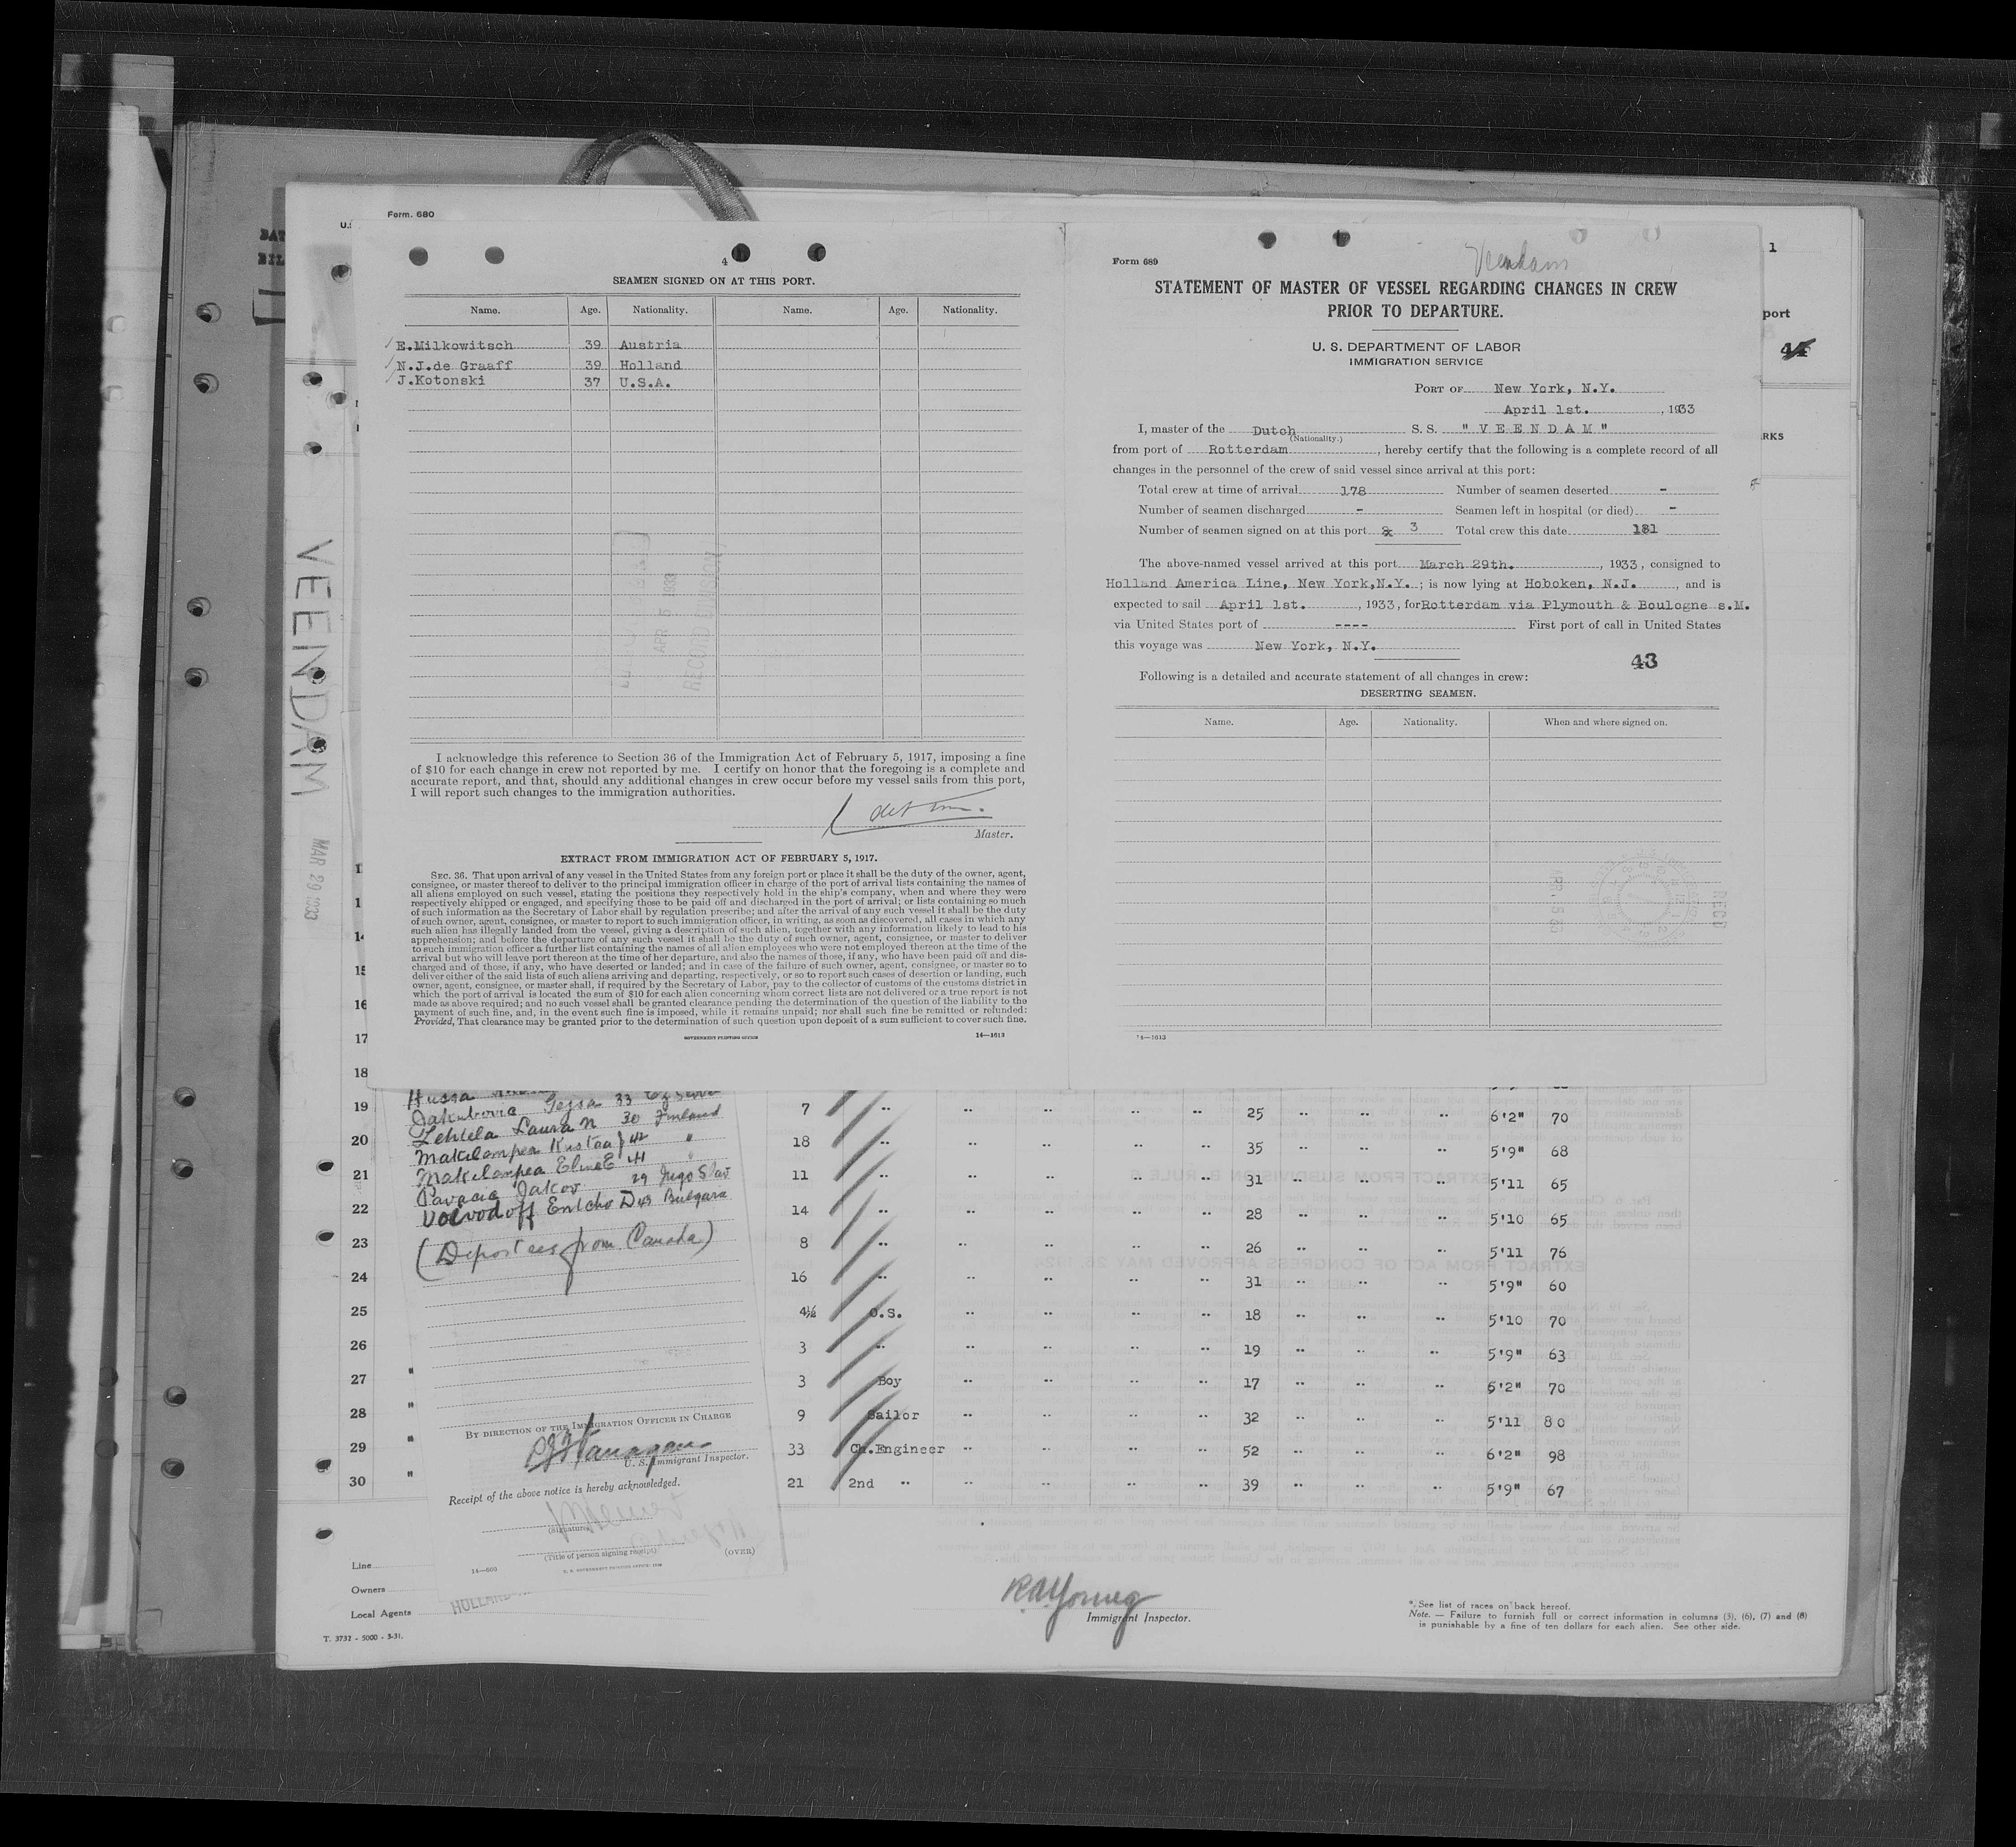 Form. 680
4
SEAMEN SIGNED ON AT THIS PORT.
Name. Age. Nationality. Name. Age. Nationality.
E.Milkowitsch 39 Austria
N.J.de Graaff 39 Holland
J.Kotonski 37 U.S.A.
APR 5 1933
RECORD DIVISION
I acknowledge this reference to Section 36 of the Immigration Act of February 5, 1917, imposing a fine
of $10 for each change in crew not reported by me. I certify on honor that the foregoing is a complete and
accurate report, and that, should any additional changes in crew occur before my vessel sails from this port,
I will report such changes to the immigration authorities.
Master.
EXTRACT FROM IMMIGRATION ACT OF FEBRUARY 5, 1917.
SEC. 36. That upon arrival of any vessel in the United States from any foreign port or place it shall be the duty of the owner, agent,
consignee, or master thereof to deliver to the principal immigration officer in charge of the port of arrival lists containing the names of
all aliens employed on such vessel, stating the positions they respectively hold in the ship's company, when and where they were
respectively shipped or engaged, and specifying those to be paid off and discharged in the port of arrival; or lists containing so much
of such information as the Secretary of Labor shall by regulation prescribe; and after the arrival of any such vessel it shall be the duty
of such owner, agent, consignee, or master to report to such immigration officer, in writing, as soon as discovered, all cases in which any
such alien has illegally landed from the vessel, giving a description of such alien, together with any information likely to lead to his
apprehension; and before the departure of any such vessel it shall be the duty of such owner, agent, consignee, or master to deliver
to such immigration officer a further list containing the names of all alien employees who were not employed thereon at the time of the
arrival but who will leave port thereon at the time of her departure, and also the names of those, if any, who have been paid off and dis-
charged and of those, if any, who have deserted or landed; and in case of the failure of such owner, agent, consignee, or master so to
deliver either of the said lists of such aliens arriving and departing, respectively, or so to report such cases of desertion or landing, such
owner, agent, consignee, or master shall, if required by the Secretary of Labor, pay to the collector of customs of the customs district in
which the port of arrival is located the sum of $10 for each alien concerning whom correct lists are not delivered or a true report is not
made as above required; and no such vessel shall be granted clearance pending the determination of the question of the liability to the
payment of such fine, and, in the event such fine is imposed, while it remains unpaid; nor shall such fine be remitted or refunded:
Provided, That clearance may be granted prior to the determination of such question upon deposit of a sum sufficient to cover such fine.
GOVERNMENT PRINTING OFFICE 14—1613
Form 689
Veendam
STATEMENT OF MASTER OF VESSEL REGARDING CHANGES IN CREW
PRIOR TO DEPARTURE.
U. S. DEPARTMENT OF LABOR
IMMIGRATION SERVICE
PORT OF New York, N.Y.
April 1st. , 1933
I, master of the Dutch S. S. " V E E N D A M "
(Nationality.)
from port of Rotterdam , hereby certify that the following is a complete record of all
changes in the personnel of the crew of said vessel since arrival at this port:
Total crew at time of arrival 178 Number of seamen deserted -
Number of seamen discharged - Seamen left in hospital (or died) -
Number of seamen signed on at this port 3 Total crew this date 181
The above-named vessel arrived at this port March 29th. , 1933, consigned to
Holland America Line, New York,N.Y. ; is now lying at Hoboken, N.J. , and is
expected to sail April 1st. , 1933, for Rotterdam via Plymouth & Boulogne s.M.
via United States port of ---- First port of call in United States
this voyage was New York, N.Y.
43
Following is a detailed and accurate statement of all changes in crew:
DESERTING SEAMEN.
Name. Age. Nationality. When and where signed on.
14—1613
1
port
RKS
VEENDAM
MAR 29 1933
14
15
16
17
18
19 7 " " " " " 25 " " " 6'2" 70
20 18 " " " " " 35 " " " 5'9" 68
21 11 " " " " " 31 " " " 5'11 65
22 14 " " " " " 28 " " " 5'10 65
23 8 " " " " " 26 " " " 5'11 76
24 16 " " " " " 31 " " " 5'9" 60
25 4½ O.S. " " " " 18 " " " 5'10 70
26 3 " " " " " 19 " " " 5'9" 63
27 " 3 Boy " " " " 17 " " " 6'2" 70
28 " 9 Sailor " " " " 32 " " " 5'11 80
29 " 33 Ch.Engineer " " " " 52 " " " 6'2" 98
30 " 21 2nd " " " " " 39 " " " 5'9" 67
Jakubovic Gejsa 33
Lehlela Laura N 30 Finland
Makilampea Kustaa J 42 "
Makilampea Eline E 41 "
Pavacic Jakov 29 Jugo Slav
Voevodoff Entcho D 43 Bulgara
(Deportees from Canada)
BY DIRECTION OF THE IMMIGRATION OFFICER IN CHARGE
U. S. Immigrant Inspector.
Receipt of the above notice is hereby acknowledged.
(Signature)
(Title of person signing receipt)
(OVER)
14—603
Line
Owners
Local Agents
HOLLAND
T. 3732 - 5000 - 3-31.
R.A. Young
Immigrant Inspector.
*. See list of races on back hereof.
Note. — Failure to furnish full or correct information in columns (3), (6), (7) and (8)
is punishable by a fine of ten dollars for each alien. See other side.